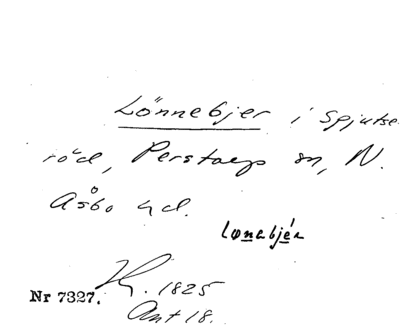 Lönnebjer i Spjutse-
röd, Perstorps sn, N.
Åsbo hd.
Lønebjér
Nr 7327. 1825
Ant 18.